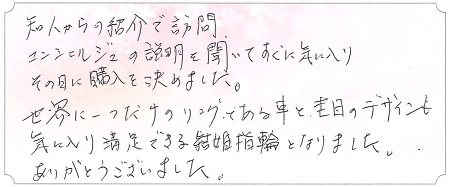 知人からの紹介で訪問
コンシェルジュの説明を聞いてすぐに気に入り
その日に購入を決めました。
世界に一つだけのリングである事と、杢目のデザインも
気に入り満足できる結婚指輪となりました。
ありがとうございました。